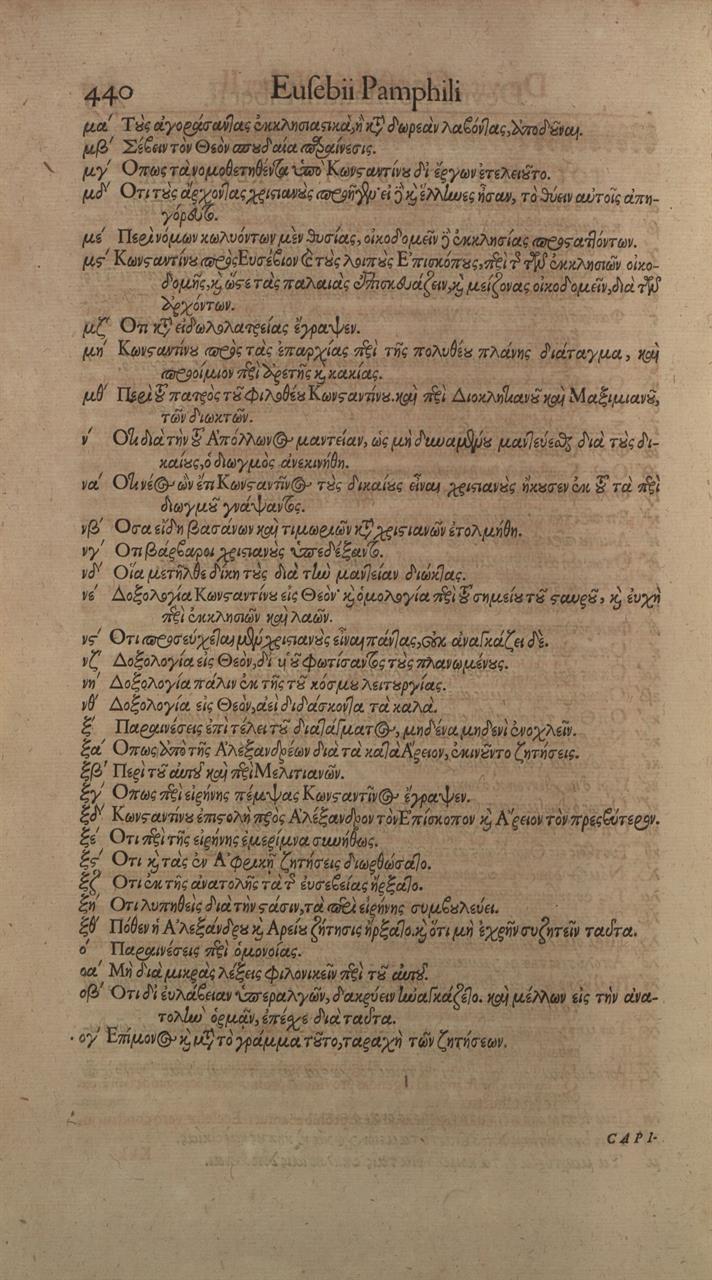 440 Eusebii Pamphili
μα΄ Τοὺς ἀγοράσαντας ἐκκλησιαστικὰ, ἢ κατὰ δωρεὰν λαβόντας, ἀποδοῦναι.
μβ΄ Σέβειν τὸν Θεὸν σπουδαία παραίνεσις.
μγ΄ Οπως τὰ νομοθετηθέντα ὑπὸ Κωνσταντίνου δι᾽ ἔργων ἐτελειοῦτο.
μδ΄ Οτι τοὺς ἄρχοντας χριστιανοὺς προῆγεν· εἰ δὲ καὶ ἕλληνες ἦσαν, τὸ θύειν αὐτοῖς ἀπη-
γόρευτο.
με΄ Περὶ νόμων κωλυόντων μὲν θυσίας, οἰκοδομεῖν δὲ ἐκκλησίας προσταττόντων.
μς΄ Κωνσταντίνου πρὸς Εὐσέβιον καὶ τοὺς λοιποὺς Ἐπισκόπους, περὶ τῆς τῶν ἐκκλησιῶν οἰκο-
δομῆς, καὶ ὥστε τὰς παλαιὰς ἐπισκευάζειν, καὶ μείζονας οἰκοδομεῖν, διὰ τῶν
ἀρχόντων.
μζ΄ Οτι κατὰ εἰδωλολατρείας ἔγραψεν.
μη΄ Κωνσταντίνου πρὸς τὰς ἐπαρχίας περὶ τῆς πολυθέου πλάνης διάταγμα, καὶ
προοίμιον περὶ ἀρετῆς καὶ κακίας.
μθ΄ Περὶ τοῦ πατρὸς τοῦ φιλοθέου Κωνσταντίνου. καὶ περὶ Διοκλητιανοῦ καὶ Μαξιμιανοῦ,
τῶν διωκτῶν.
ν΄ Οτι διὰ τὴν τοῦ Ἀπόλλωνος μαντείαν, ὡς μὴ δυναμένου μαντεύεσθαι διὰ τοὺς δι-
καίους, ὁ διωγμὸς ἀνεκινήθη.
να΄ Οτι νέος ὢν ἔτι Κωνσταντῖνος τοὺς δικαίους εἶναι χριστιανοὺς ἤκουσεν ἐκ τοῦ τὰ περὶ
διωγμοῦ γράψαντος.
νβ΄ Οσα εἴδη βασάνων καὶ τιμωριῶν κατὰ χριστιανῶν ἐτολμήθη.
νγ΄ Οτι βάρβαροι χριστιανοὺς ὑπεδέξαντο.
νδ΄ Οἵα μετῆλθε δίκη τοὺς διὰ τὴν μαντείαν διώκτας.
νε΄ Δοξολογία Κωνσταντίνου εἰς Θεὸν· καὶ ὁμολογία περὶ τοῦ σημείου τοῦ σταυροῦ, καὶ εὐχὴ
περὶ ἐκκλησιῶν καὶ λαῶν.
νς΄ Οτι προσεύχεται μὲν χριστιανοὺς εἶναι πάντας, οὐκ ἀναγκάζει δέ.
νζ΄ Δοξολογία εἰς Θεὸν, δι᾽ υἱοῦ φωτίσαντος τοὺς πλανωμένους.
νη΄ Δοξολογία πάλιν ἐκ τῆς τοῦ κόσμου λειτουργίας.
νθ΄ Δοξολογία εἰς Θεὸν, ἀεὶ διδάσκοντα τὰ καλά.
ξ΄ Παραινέσεις ἐπὶ τέλει τοῦ διατάγματος, μηδένα μηδενὶ ἐνοχλεῖν.
ξα΄ Οπως ἀπὸ τῆς Ἀλεξανδρέων διὰ τὰ κατὰ Ἄρειον, ἐκινοῦντο ζητήσεις.
ξβ΄ Περὶ τοῦ αὐτοῦ καὶ περὶ Μελιτιανῶν.
ξγ΄ Οπως περὶ εἰρήνης πέμψας Κωνσταντῖνος ἔγραψεν.
ξδ΄ Κωνσταντίνου ἐπιστολὴ πρὸς Ἀλέξανδρον τὸν Ἐπίσκοπον καὶ Ἄρειον τὸν πρεσβύτερον.
ξε΄ Οτι περὶ τῆς εἰρήνης ἐμερίμνα συνήθως.
ξς΄ Οτι καὶ τὰς ἐν Ἀφρικῇ ζητήσεις διωρθώσατο.
ξζ΄ Οτι ἐκ τῆς ἀνατολῆς τὰ τῆς εὐσεβείας ἤρξατο.
ξη΄ Οτι λυπηθεὶς διὰ τὴν στάσιν, τὰ περὶ εἰρήνης συμβουλεύει.
ξθ΄ Πόθεν ἡ Ἀλεξάνδρου καὶ Ἀρείου ζήτησις ἤρξατο. καὶ ὅτι μὴ ἐχρῆν συζητεῖν ταῦτα.
ο΄ Παραινέσεις περὶ ὁμονοίας.
οα΄ Μὴ διὰ μικρὰς λέξεις φιλονικεῖν περὶ τοῦ αὐτοῦ.
οβ΄ Οτι δι᾽ εὐλάβειαν ὑπεραλγῶν, δακρύειν ἠναγκάζετο. καὶ μέλλων εἰς τὴν ἀνα-
τολὴν ὁρμᾷν, ἐπέσχε διὰ ταῦτα.
ογ΄ Ἐπίμονος καὶ μετὰ τὸ γράμμα τοῦτο, ταραχὴ τῶν ζητήσεων.
CAPI-